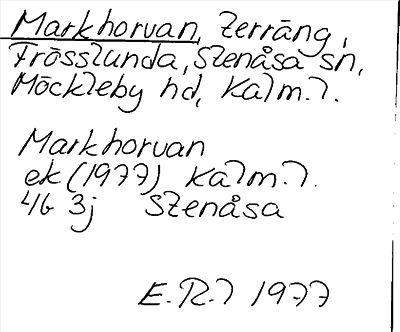 Markhorvan, terräng,
Frösslunda, Stenåsa sn,
Möckleby hd, Kalm.l.
Markhorvan
ek (1977) Kalm.l.
4G 3j Stenåsa
E.R.l 1977